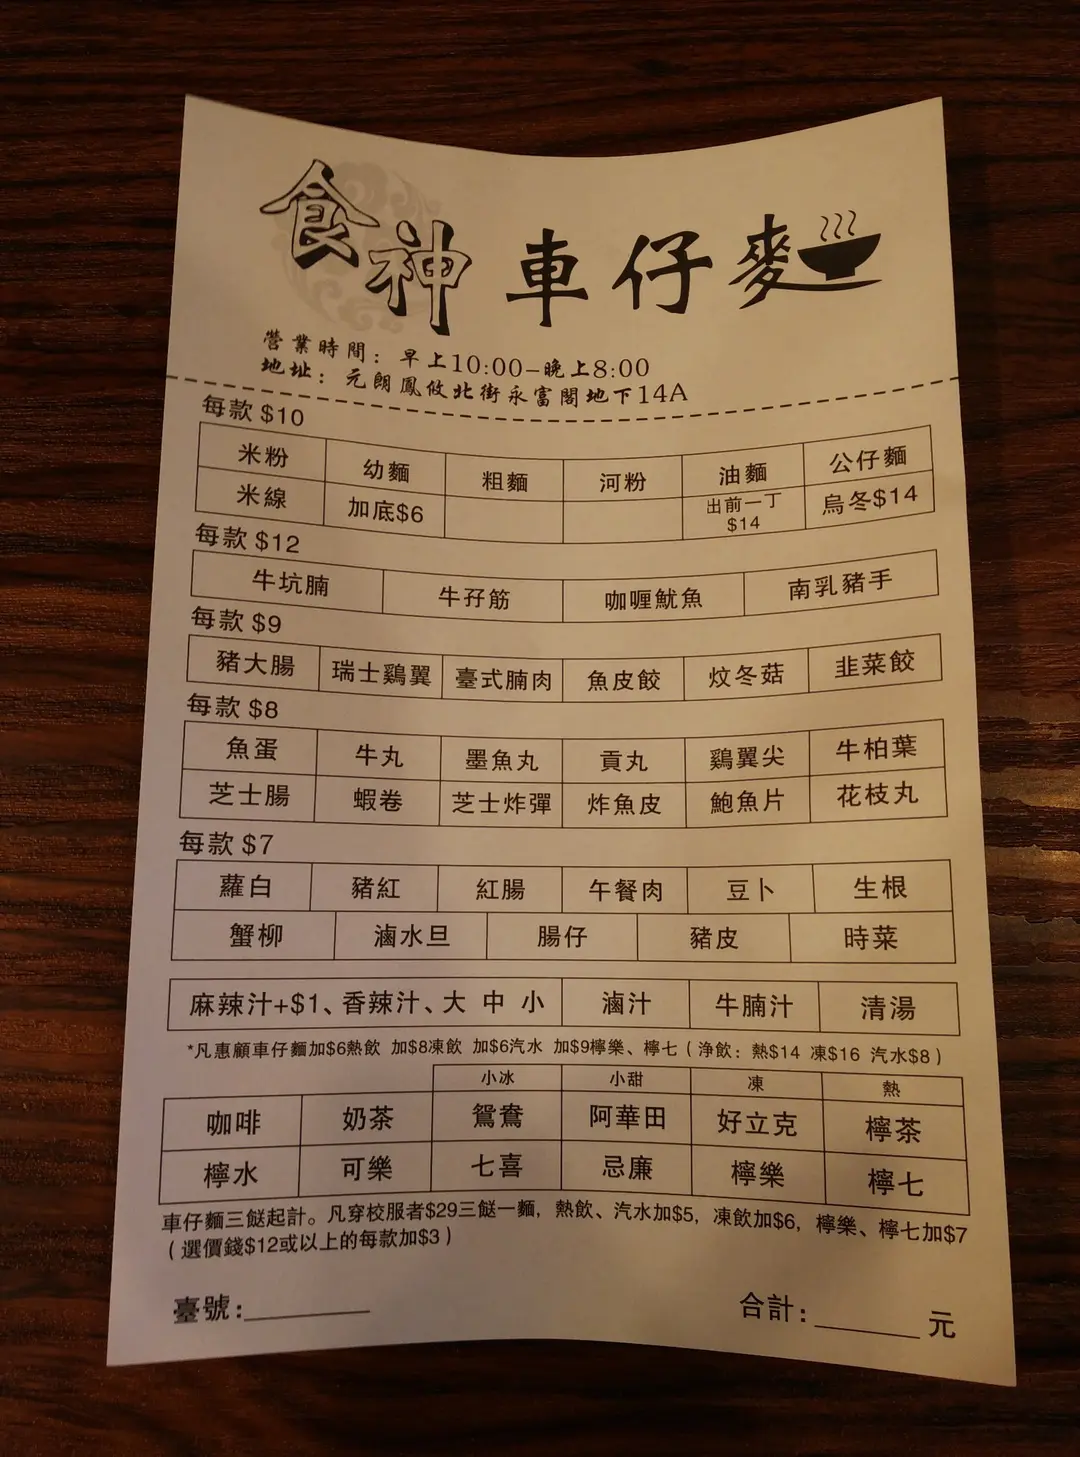 食神車仔麵
營業時間：早上10:00-晚上8:00
地址：元朗鳳攸北街永富閣地下14A
每款 $10
米粉 幼麵 粗麵 河粉 油麵 公仔麵
米線 加底$6 出前一丁 $14 烏冬$14
每款 $12
牛坑腩 牛孖筋 咖喱魷魚 南乳豬手
每款 $9
豬大腸 瑞士鷄翼 臺式腩肉 魚皮餃 炆冬菇 韭菜餃
每款 $8
魚蛋 牛丸 墨魚丸 貢丸 鷄翼尖 牛柏葉
芝士腸 蝦卷 芝士炸彈 炸魚皮 鮑魚片 花枝丸
每款 $7
蘿白 豬紅 紅腸 午餐肉 豆卜 生根
蟹柳 滷水旦 腸仔 豬皮 時菜
麻辣汁+$1、香辣汁、大 中 小 滷汁 牛腩汁 清湯
*凡惠顧車仔麵加$6熱飲 加$8凍飲 加$6汽水 加$9檸樂、檸七（淨飲：熱$14 凍$16 汽水$8）
小冰 小甜 凍 熱
咖啡 奶茶 鴛鴦 阿華田 好立克 檸茶
檸水 可樂 七喜 忌廉 檸樂 檸七
車仔麵三餸起計。凡穿校服者$29三餸一麵，熱飲、汽水加$5，凍飲加$6，檸樂、檸七加$7
（選價錢$12或以上的每款加$3）
臺號：
合計： 元